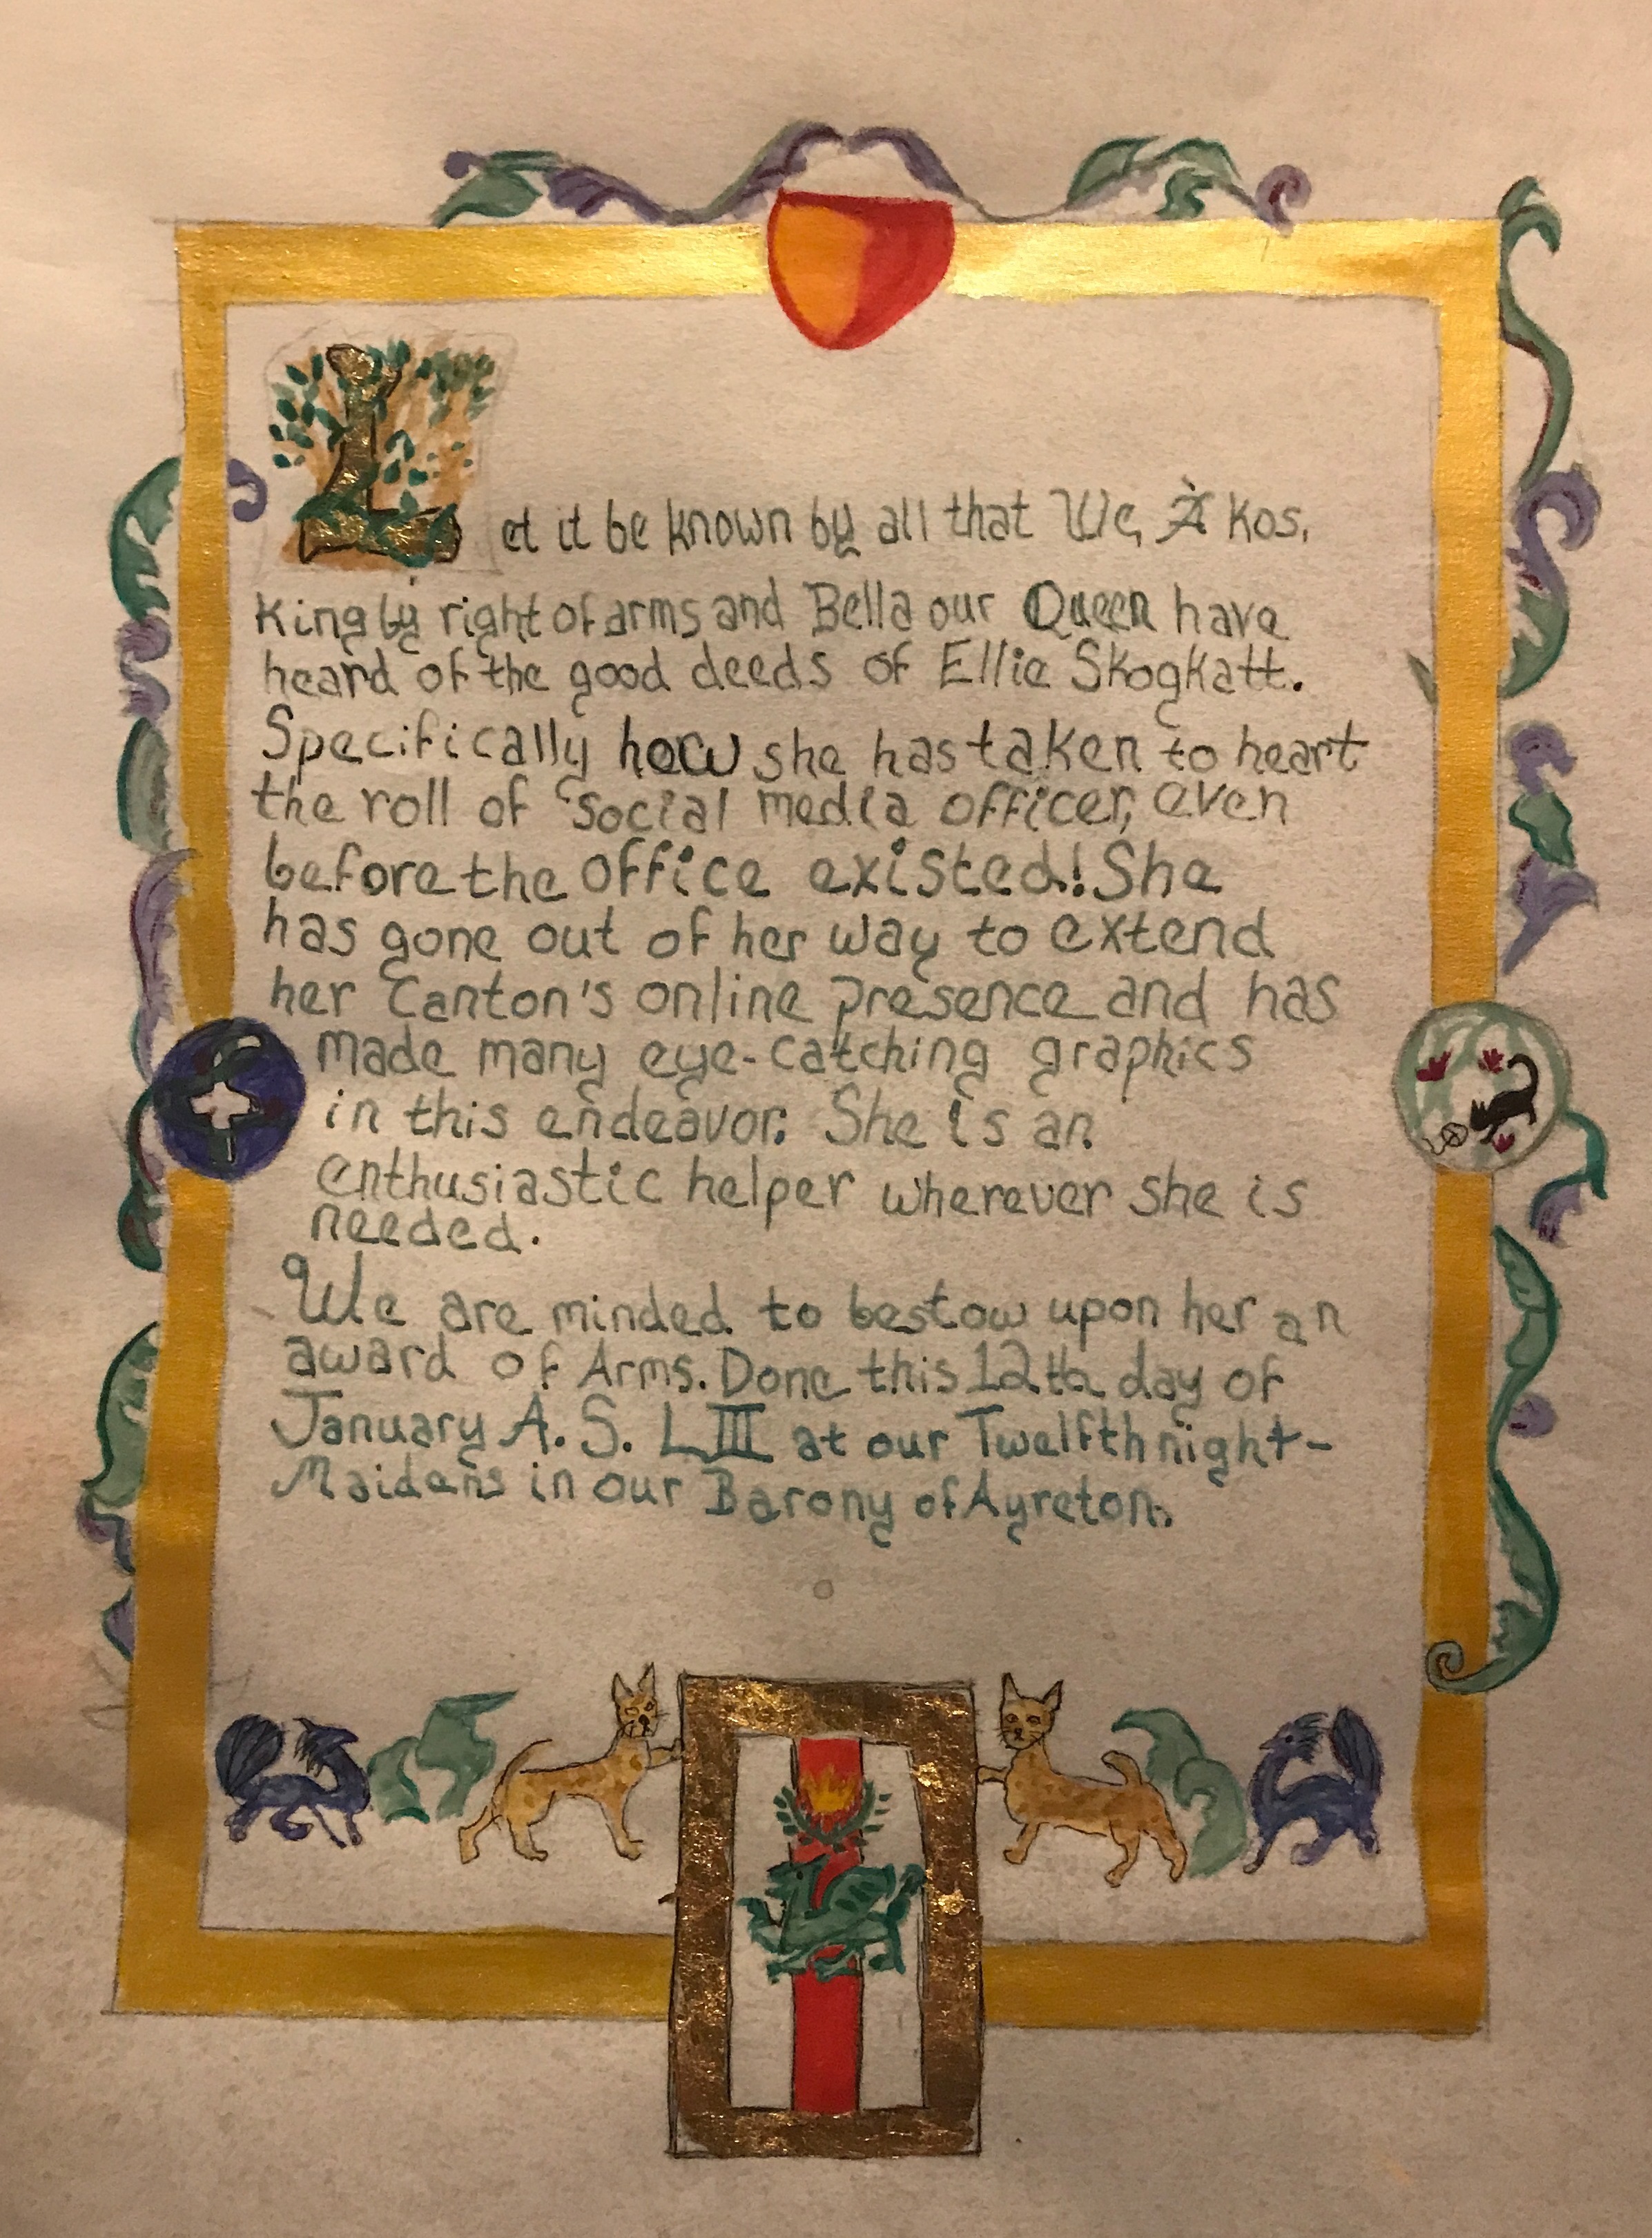 Let it be known by all that We, Àkos,
King by right of arms and Bella our Queen have
heard of the good deeds of Ellie Skogkatt.
Specifically how she has taken to heart
the roll of 'social media officer, even
before the office existed! She
has gone out of her way to extend
her Canton's online presence and has
made many eye-catching graphics
in this endeavor. She is an
enthusiastic helper wherever she is
needed.
We are minded to bestow upon her an
award of Arms. Done this 12th day of
January A. S. LIII at our Twelfth night-
Maidens in our Barony of Ayreton.